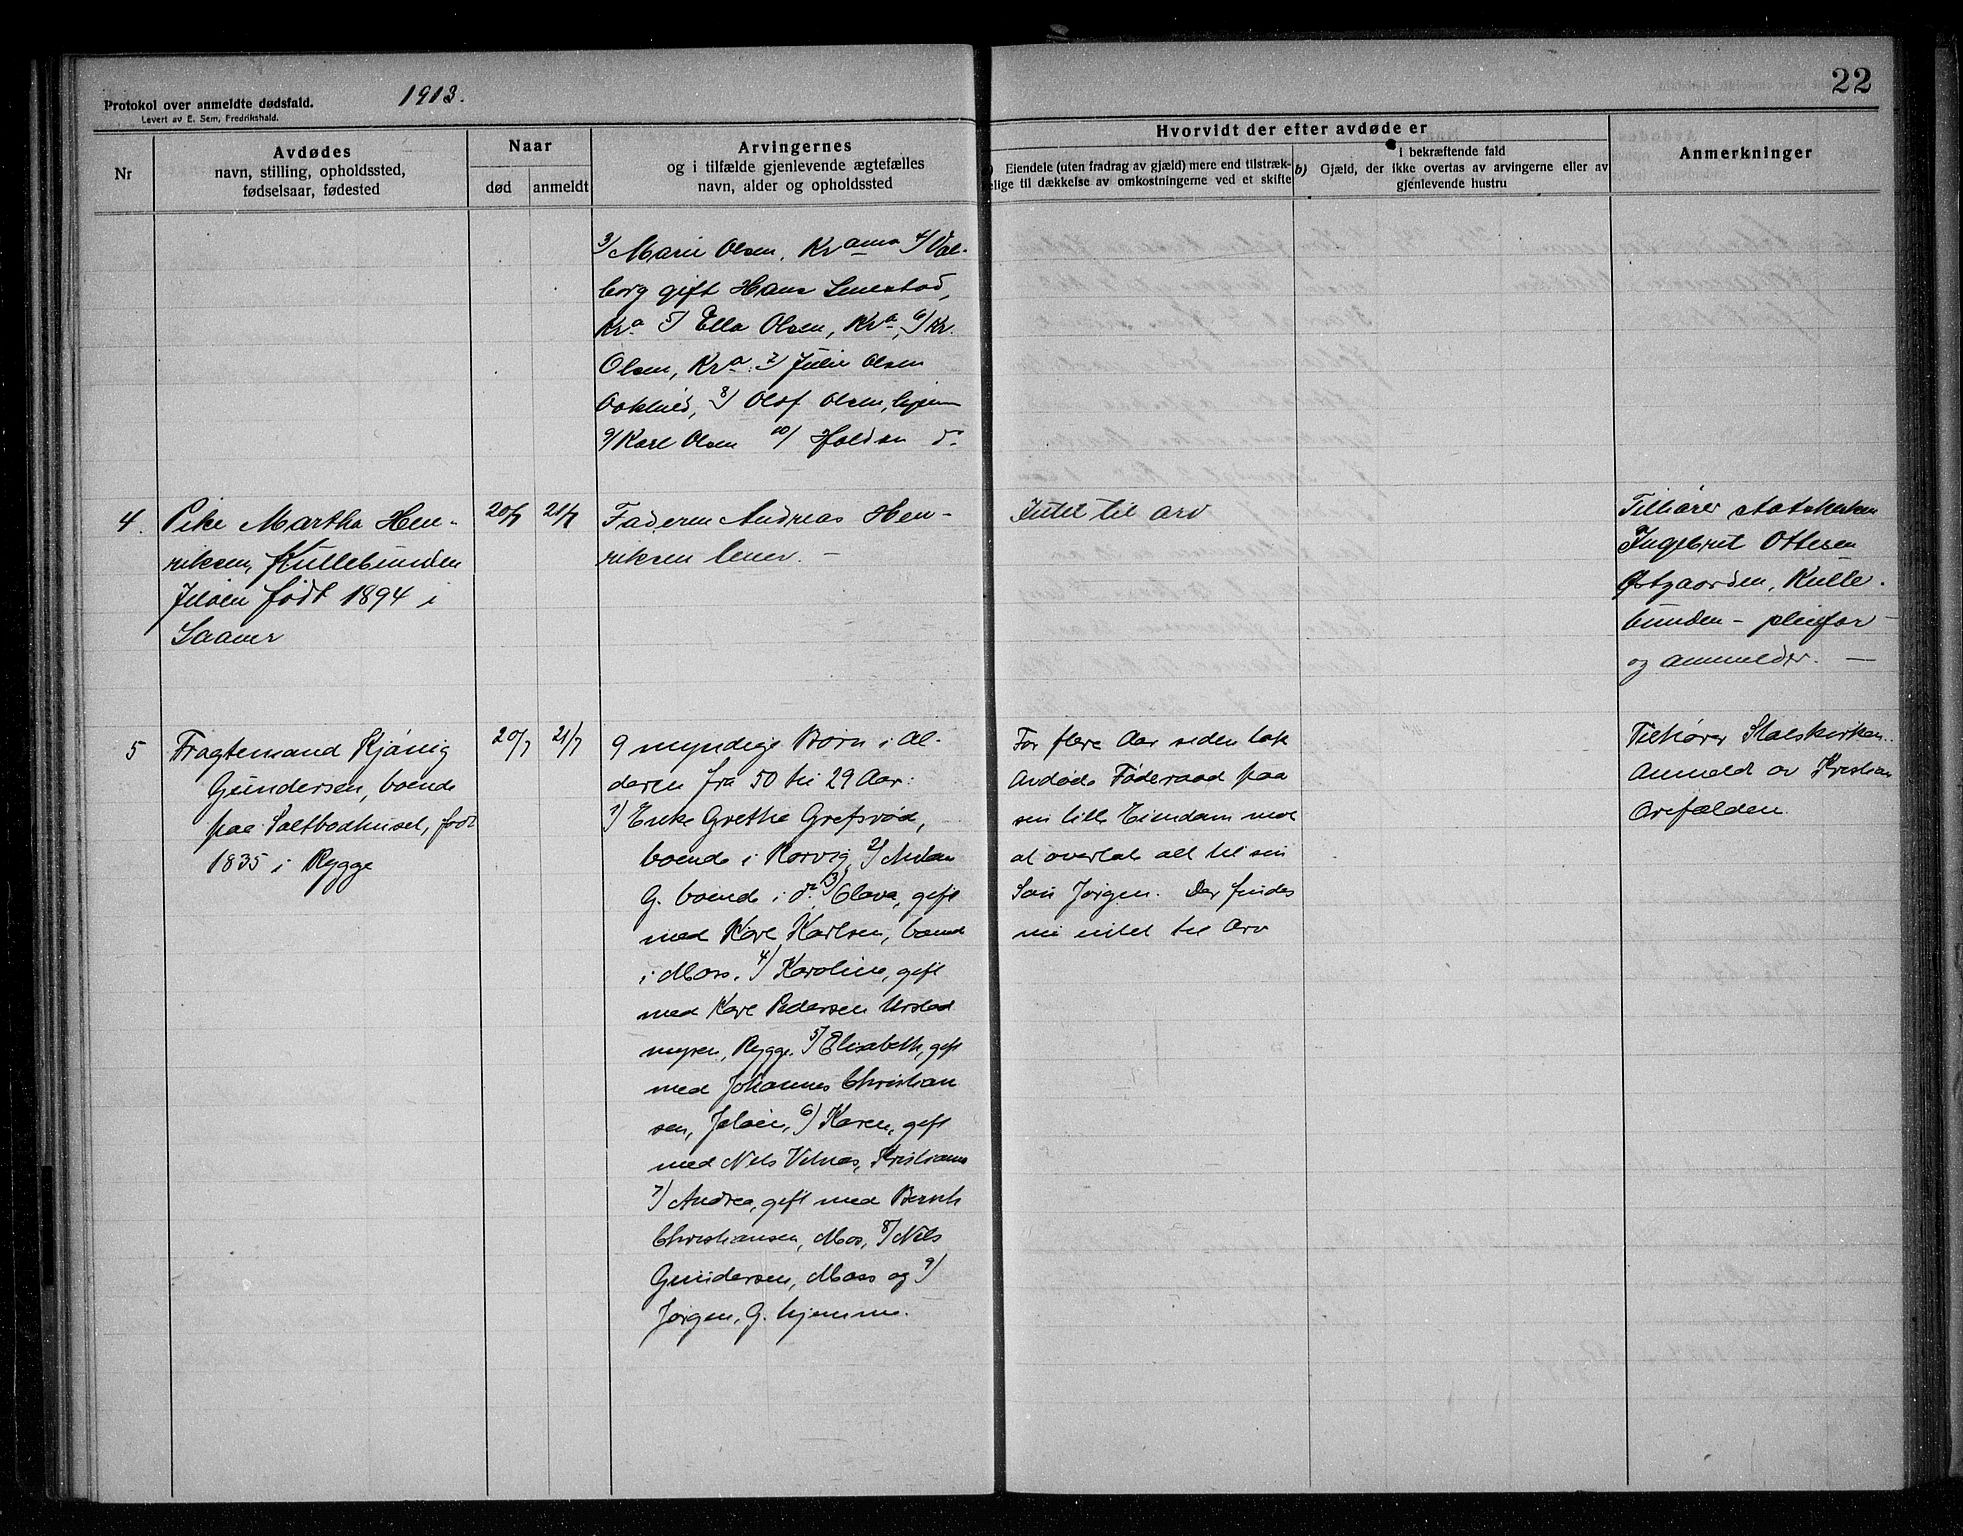 Protokol over anmeldte dødsfald.
Levert av E. Sem, Fredrikshald.
1913.
22
Nr
Avdødes
navn, stilling, opholdssted,
fødselsaar, fødested
Naar
død
anmeldt
Arvingernes
og i tilfælde gjenlevende ægtefælles
navn, alder og opholdssted
Hvorvidt der efter avdøde er
Eiendele (uten fradrag av gjæld) mere end tilstræk-
elige til dækkelse av omkostningerne ved et skifte
b) I bekræftende fald
Gjæld, der ikke overtas av arvingerne eller av
gjenlevende hustru
Anmerkninger
3/ Marie Olsen, Kr ania 4/ Val-
borg gift Hans
Kr a 5/ Ella Olsen, Kr a, 6/ Kr.
Olsen, Kr a. 7/ Julie Olsen
8/ Olaf Olsen, hjem
9/ Karl Olsen 10/ Haldan do
4. Pike Martha Hen-
riksen, Kullebunden
Jeløen født 1894 i
Saaner
20/7 21/7
Faderen Andreas Hen-
riksen lever. —
Intet til arv
Tilhører statskirken
Ingebret Ottesen
Østgaarden, Kulle-
bunden - pleiefar
og anmelder. —
5 Fragtemand Kjønig
Gundersen, boende
paa Saltbodhuset, født
1835 i Rygge
20/7 21/7
9 myndige Børn i Al-
deren fra 50 til 29 Aar:
1) Enke Grethe Grefsrød,
boende i Rørvig, 2)
G. boende i do, 3) Olava, gift
med Karl Karlsen, boende
i Moss, 4) Karoline, gift
med Karl Pedersen
myren, Rygge. 5) Elisabeth, gift
med Johannes Christian
sen, Jeløen, 6) Karen, gift
med Nils Kristiania
7) Andrea, gift med Bernh
Christiansen, Mos, 8) Nils
Gundersen, Moss og 9)
Jørgen, G. hjemme.
For flere Aar siden tok
Avdøde Føderaad paa
sin lille Eiendom mot
at overlate alt til sin
Søn Jørgen. Der findes
nu intet til Arv
Tilhører Statskirken.
Anmeldt av Kristian
Orefælden.